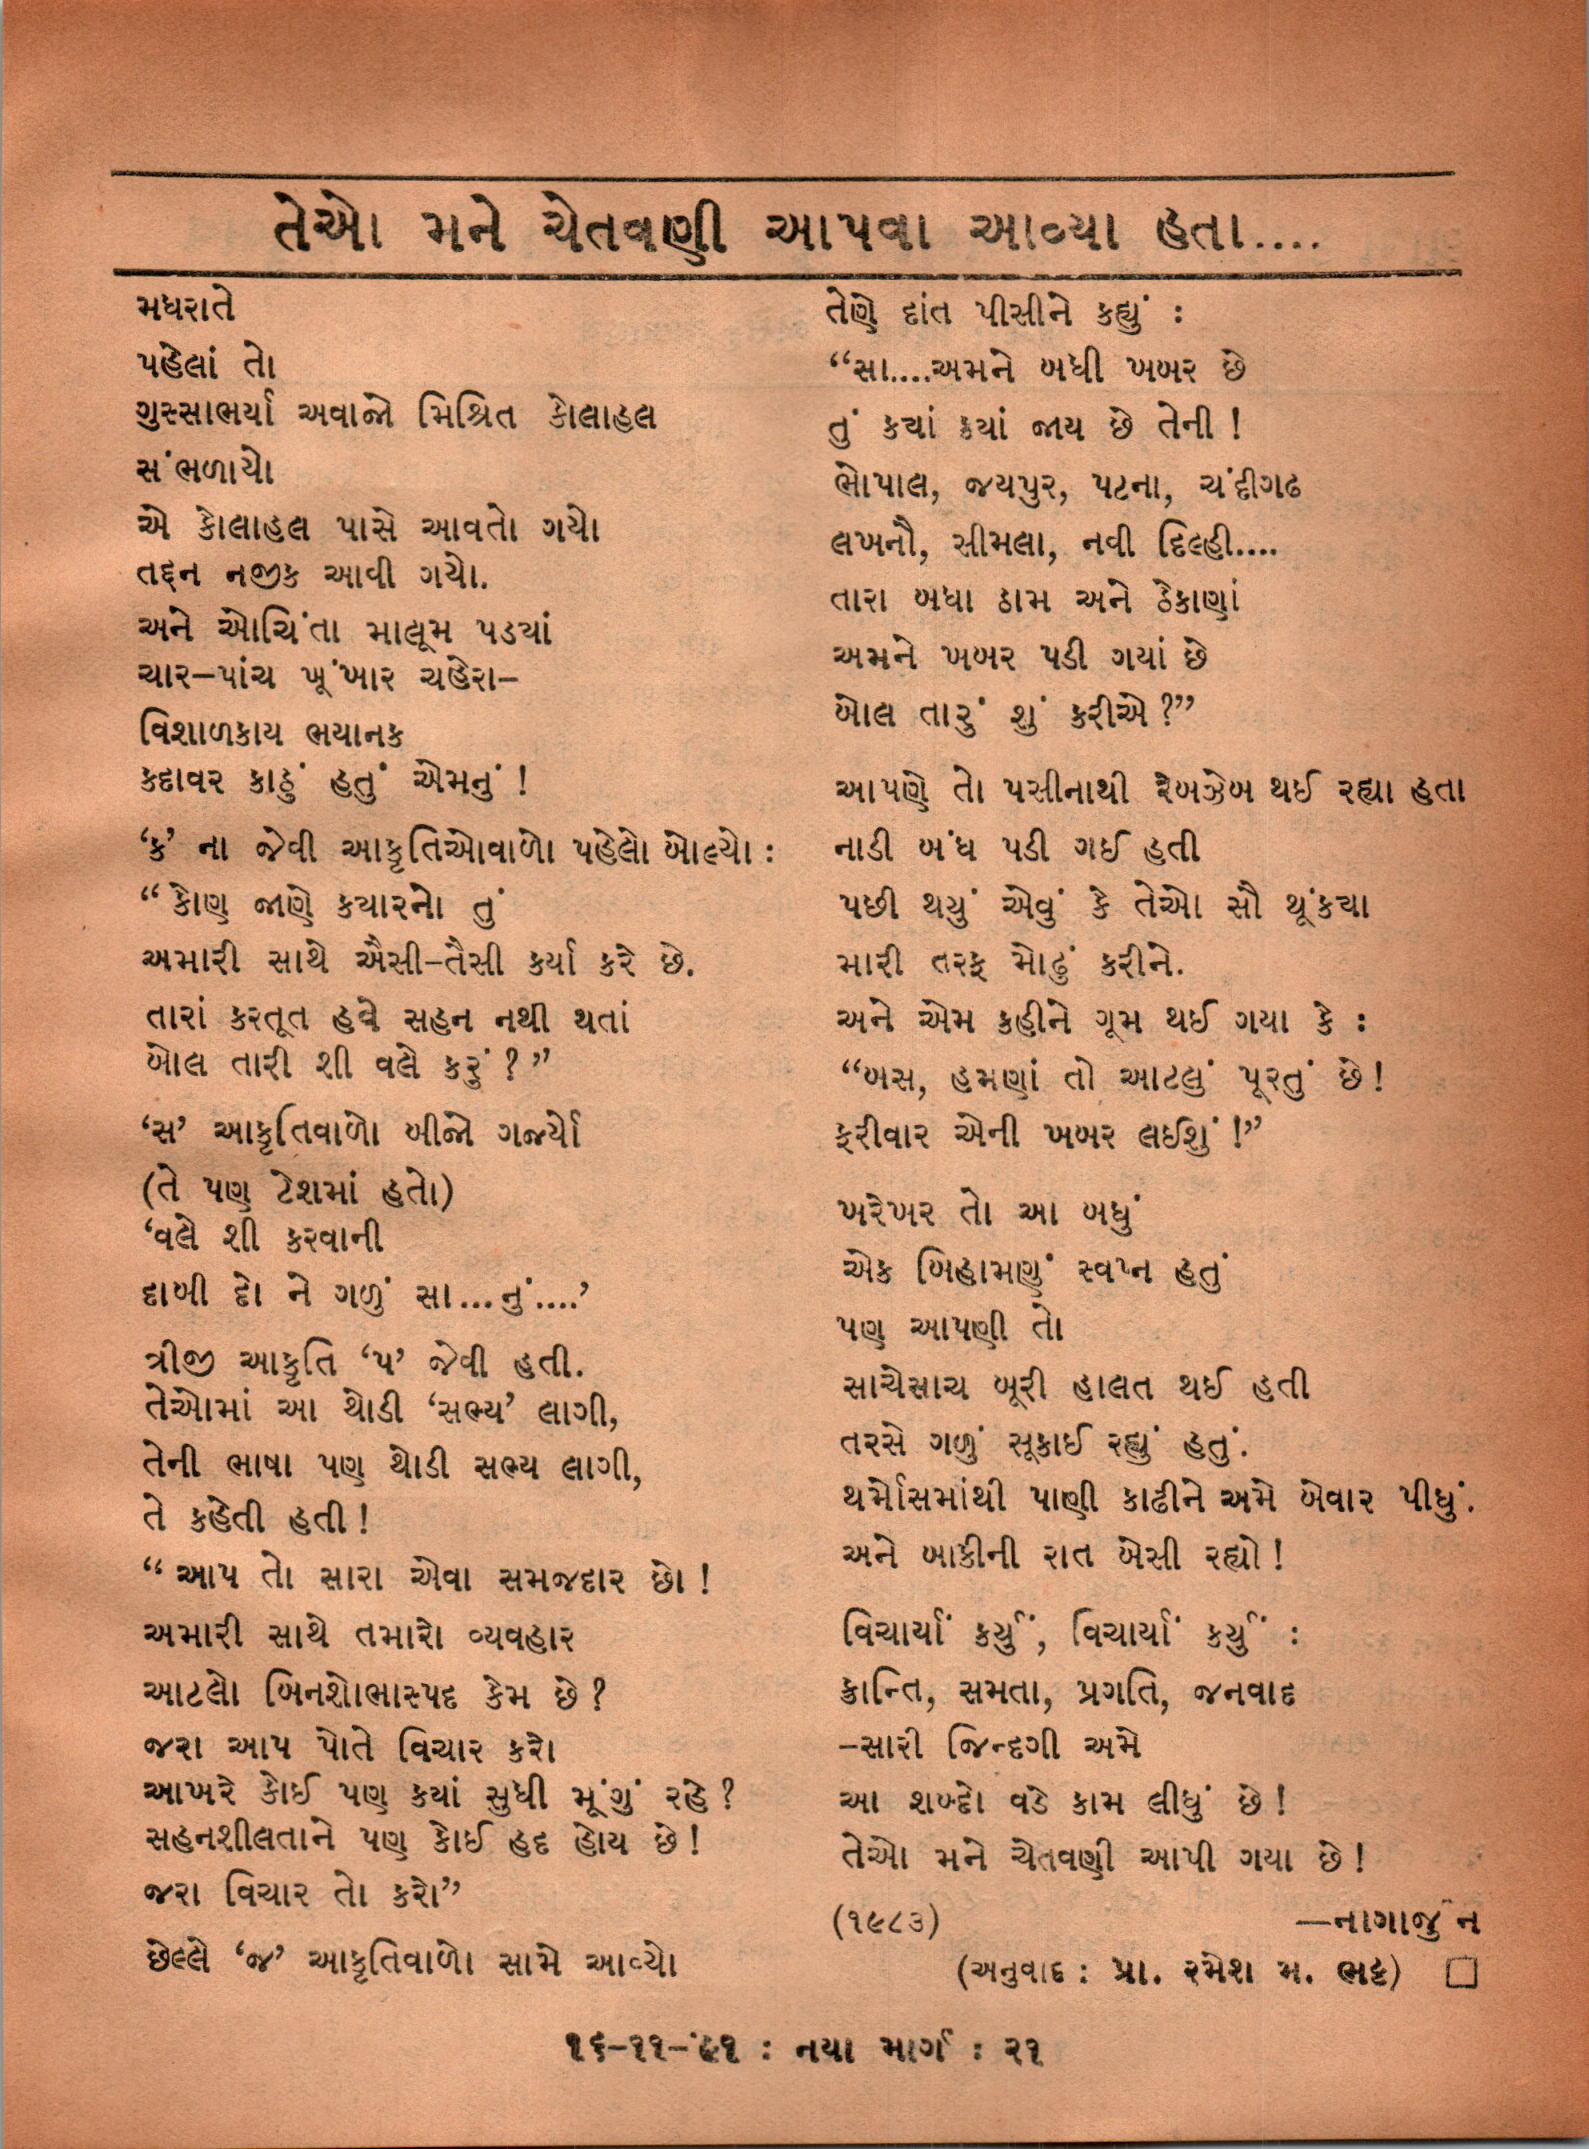 તેઓ મને ચેતવણી આપવા આવ્યા હતા....
મધરાતે
પહેલાં તો
ગુસ્સાભર્યા અવાજો મિશ્રિત કોલાહલ
સંભળાયો
એ કોલાહલ પાસે આવતો ગયો
તદ્દન નજીક આવી ગયો.
અને ઓચિંતા માલૂમ પડયાં
ચાર–પાંચ ખૂંખાર ચહેરા–
વિશાળકાય ભયાનક
કદાવર કાઠું હતું એમનું !
‘ક’ ના જેવી આકૃતિઓવાળો પહેલો બોલ્યો :
“ કોણ જાણે કયારનો તું
અમારી સાથે ઐસી–તૈસી કર્યા કરે છે.
તારાં કરતૂત હવે સહન નથી થતાં
બોલ તારી શી વલે કરું ? ”
‘સ’ આકૃતિવાળો બીજો ગર્જ્યો
(તે પણ ટેશમાં હતો)
‘વલે શી કરવાની
દાબી દો ને ગળું સા...નું....’
ત્રીજી આકૃતિ ‘પ’ જેવી હતી.
તેઓમાં આ થોડી ‘સભ્ય’ લાગી,
તેની ભાષા પણ થોડી સભ્ય લાગી,
તે કહેતી હતી !
“ આપ તો સારા એવા સમજદાર છો !
અમારી સાથે તમારો વ્યવહાર
આટલો બિનશોભાસ્પદ કેમ છે ?
જરા આપ પોતે વિચાર કરો
આખરે કોઈ પણ કયાં સુધી મૂંગું રહે ?
સહનશીલતાને પણ કોઈ હદ હોય છે !
જરા વિચાર તો કરો”
છેલ્લે ‘જ’ આકૃતિવાળો સામે આવ્યો
તેણે દાંત પીસીને કહ્યું :
“સા....અમને બધી ખબર છે
તું કયાં કયાં જાય છે તેની !
ભોપાલ, જયપુર, પટના, ચંદીગઢ
લખનૌ, સીમલા, નવી દિલ્હી....
તારા બધા ઠામ અને ઠેકાણાં
અમને ખબર પડી ગયાં છે
બોલ તારું શું કરીએ ?”
આપણે તો પસીનાથી રેબઝેબ થઈ રહ્યા હતા
નાડી બંધ પડી ગઈ હતી
પછી થયું એવું કે તેઓ સૌ થૂંકયા
મારી તરફ મોઢું કરીને.
અને એમ કહીને ગૂમ થઈ ગયા કે :
“બસ, હમણાં તો આટલું પૂરતું છે !
ફરીવાર એની ખબર લઈશું !”
ખરેખર તો આ બધું
એક બિહામણું સ્વપ્ન હતું
પણ આપણી તો
સાચેસાચ બૂરી હાલત થઈ હતી
તરસે ગળું સૂકાઈ રહ્યું હતું.
થર્મોસમાંથી પાણી કાઢીને અમે બેવાર પીધું.
અને બાકીની રાત બેસી રહ્યો !
વિચાર્યાં કર્યું, વિચાર્યાં કર્યું :
ક્રાન્તિ, સમતા, પ્રગતિ, જનવાદ
–સારી જિન્દગી અમે
આ શબ્દો વડે કામ લીધું છે !
તેઓ મને ચેતવણી આપી ગયા છે !
(૧૯૮૩) —નાગાર્જુન
(અનુવાદ : પ્રા. રમેશ મ. ભટ્ટ)
૧૬–૧૧–’૯૧ : નયા માર્ગ : ૨૧